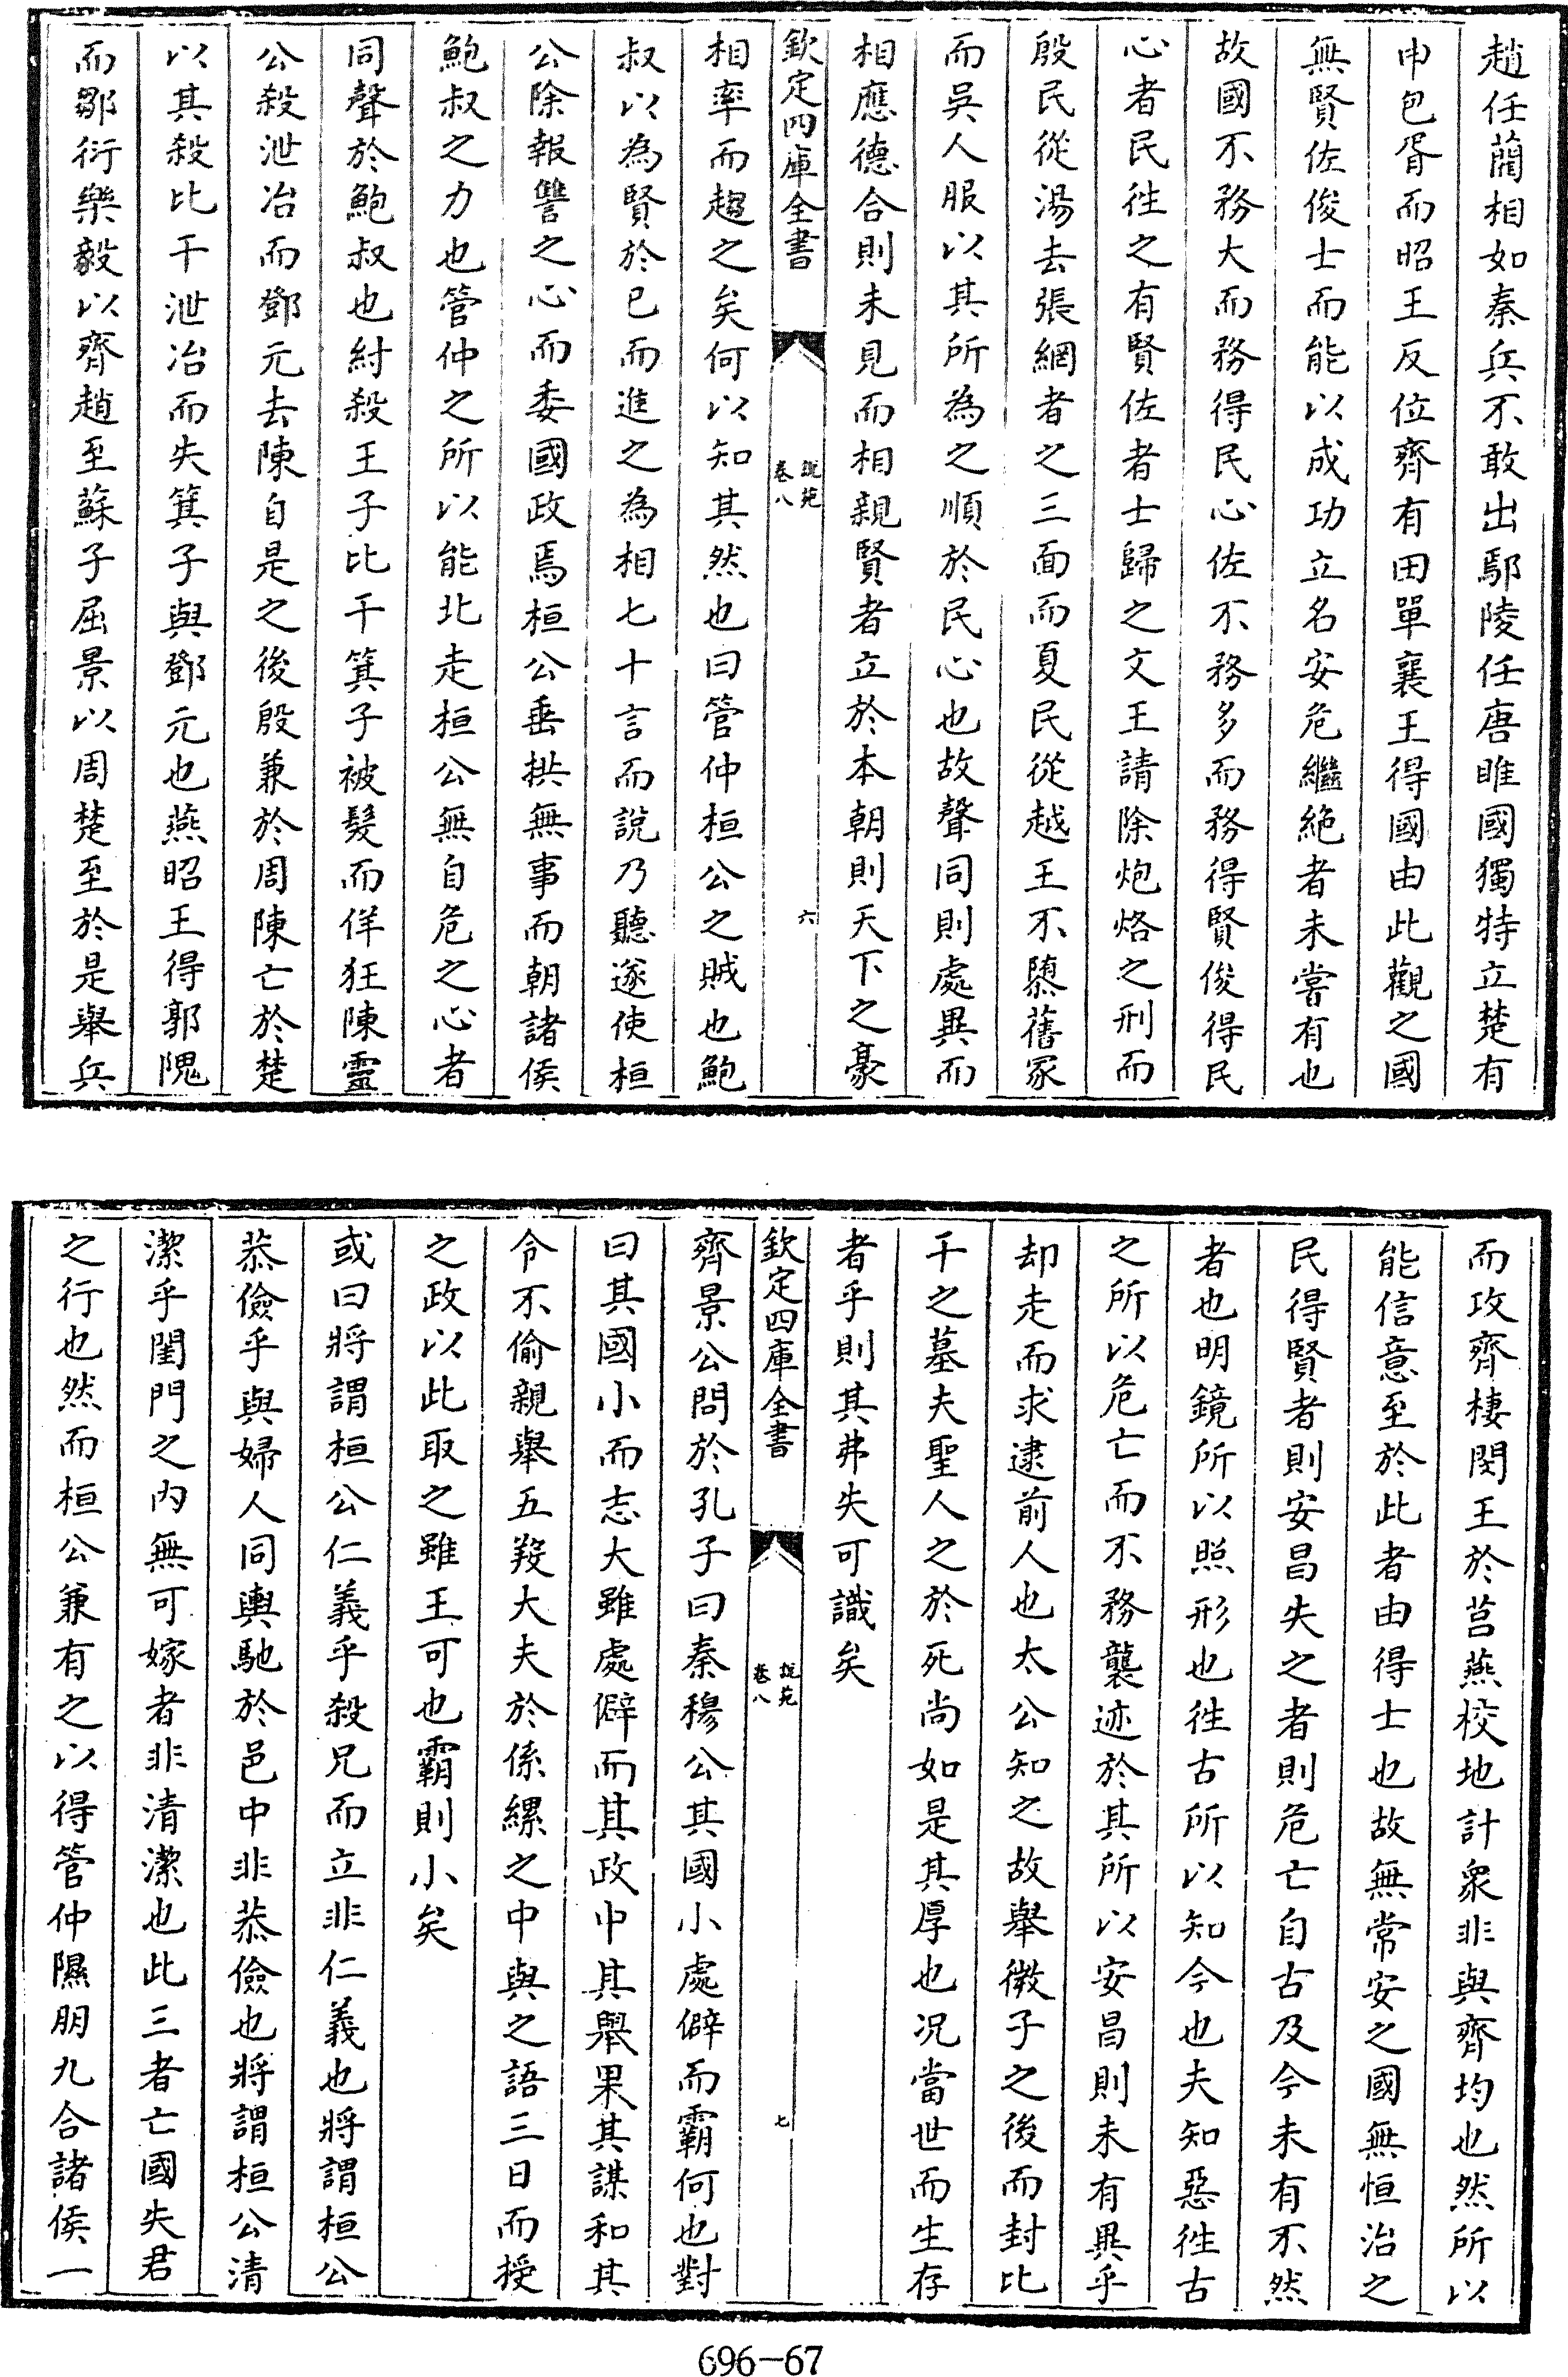 趙任藺相如秦兵不敢出鄢陵任唐睢國獨特立楚有
申包胥而昭王反位齊有田單襄王得國由此觀之國
無賢佐俊士而能以成功立名安危繼絶者未嘗有也
故國不務大而務得民心佐不務多而務得賢俊得民
心者民往之有賢佐者士歸之文王請除炮烙之刑而
殷民從湯去張網者之三面而夏民從越王不隳舊冢
而吳人服以其所為之順於民心也故聲同則處異而
相應德合則未見而相親賢者立於本朝則天下之豪
欽定四庫全書
說苑
卷八
六
相率而趨之矣何以知其然也曰管仲桓公之賊也鮑
叔以為賢於已而進之為相七十言而說乃聽遂使桓
公除報讐之心而委國政焉桓公垂拱無事而朝諸侯
鮑叔之力也管仲之所以能北走桓公無自危之心者
同聲於鮑叔也紂殺王子比干箕子被髮而佯狂陳靈
公殺泄冶而鄧元去陳自是之後殷兼於周陳亡於楚
以其殺比干泄冶而失箕子與鄧元也燕昭王得郭隗
而鄒衍樂毅以齊趙至蘇子屈景以周楚至於是舉兵
而攻齊棲閔王於莒燕校地計衆非與齊均也然所以
能信意至於此者由得士也故無常安之國無恒治之
民得賢者則安昌失之者則危亡自古及今未有不然
者也明鏡所以照形也往古所以知今也夫知惡往古
之所以危亡而不務襲迹於其所以安昌則未有異乎
却走而求逮前人也太公知之故舉微子之後而封比
干之墓夫聖人之於死尚如是其厚也况當世而生存
者乎則其弗失可識矣
欽定四庫全書
說苑
卷八
七
齊景公問於孔子曰秦穆公其國小處僻而霸何也對
曰其國小而志大雖處僻而其政中其舉果其謀和其
令不偷親舉五羖大夫於係縲之中與之語三日而授
之政以此取之雖王可也霸則小矣
或曰將謂桓公仁義乎殺兄而立非仁義也將謂桓公
恭儉乎與婦人同輿馳於邑中非恭儉也將謂桓公清
潔乎閨門之内無可嫁者非清潔也此三者亡國失君
之行也然而桓公兼有之以得管仲隰朋九合諸侯一
696-67